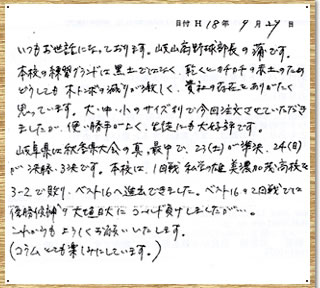 日付 H 18年 9月 27日
いつもお世話になっております。山岐山高野球部長の蒲です。
本校の練習グランドは黒土でではなく、乾くとカチカチの茶土のため
どうしても木トンボの減りが激しく、貴社の存在をありがたく
思っています。大・中・小のサイズ有りで今回注文させていただき
ましたが、使い勝手がよく、生徒にも大好評です。
岐阜県は秋季県大会の真っ最中で、23(土)が準決、24(日)
が決勝・3決です。本校は、1回戦 私学の雄 美濃加茂高校を
3-2で敗り、ベスト16へ進出できました。ベスト16の2回戦では
優勝候補の大垣日大にコールド負けしましたが…。
これからもよろしくお願いいたします。
(コラムとても楽しみにしています。)